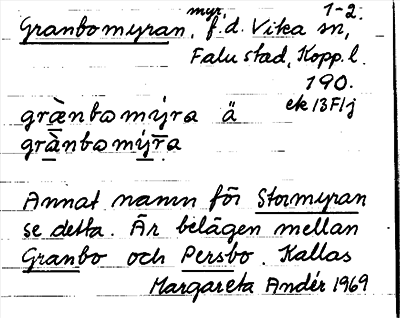 Granbomyran, myr, f.d. Vika sn, 1-2.
Falu stad, Kopp. l.
190.
ek 13F1j
grànbωmýra ä
grànbωmýra
Annat namn för Stormyran
se detta. Är belägen mellan
Granbo och Persbo. Kallas
Margareta Andér 1969